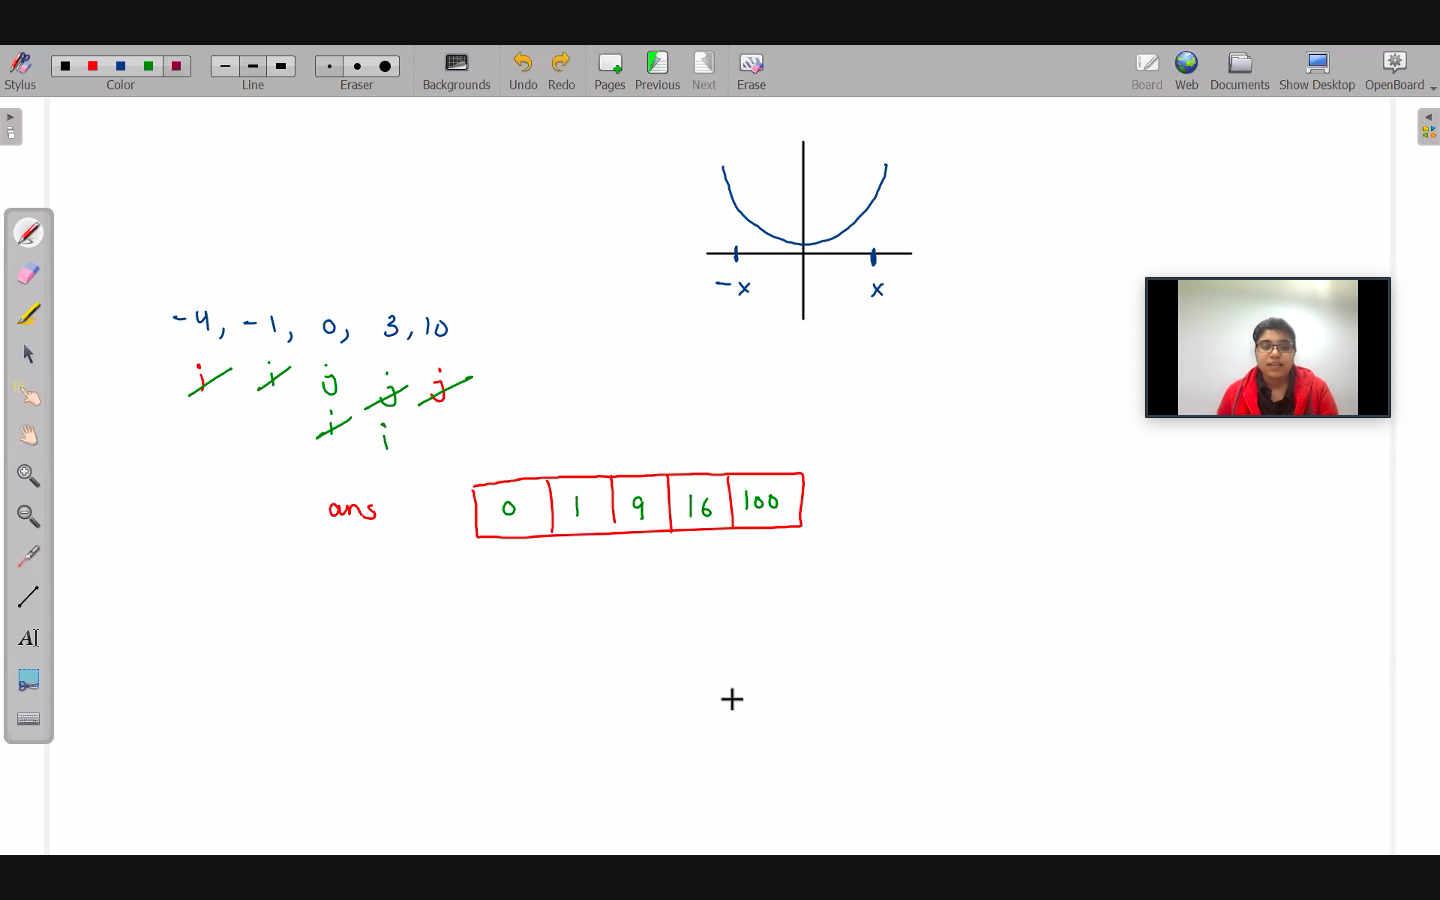 Stylus Color Line Eraser Backgrounds Undo Redo Pages Previous Next Erase Board Web Documents Show Desktop OpenBoard
-x x
-4, -1, 0, 3, 10
i i j j j
i i
ans 0 1 9 16 100
AI